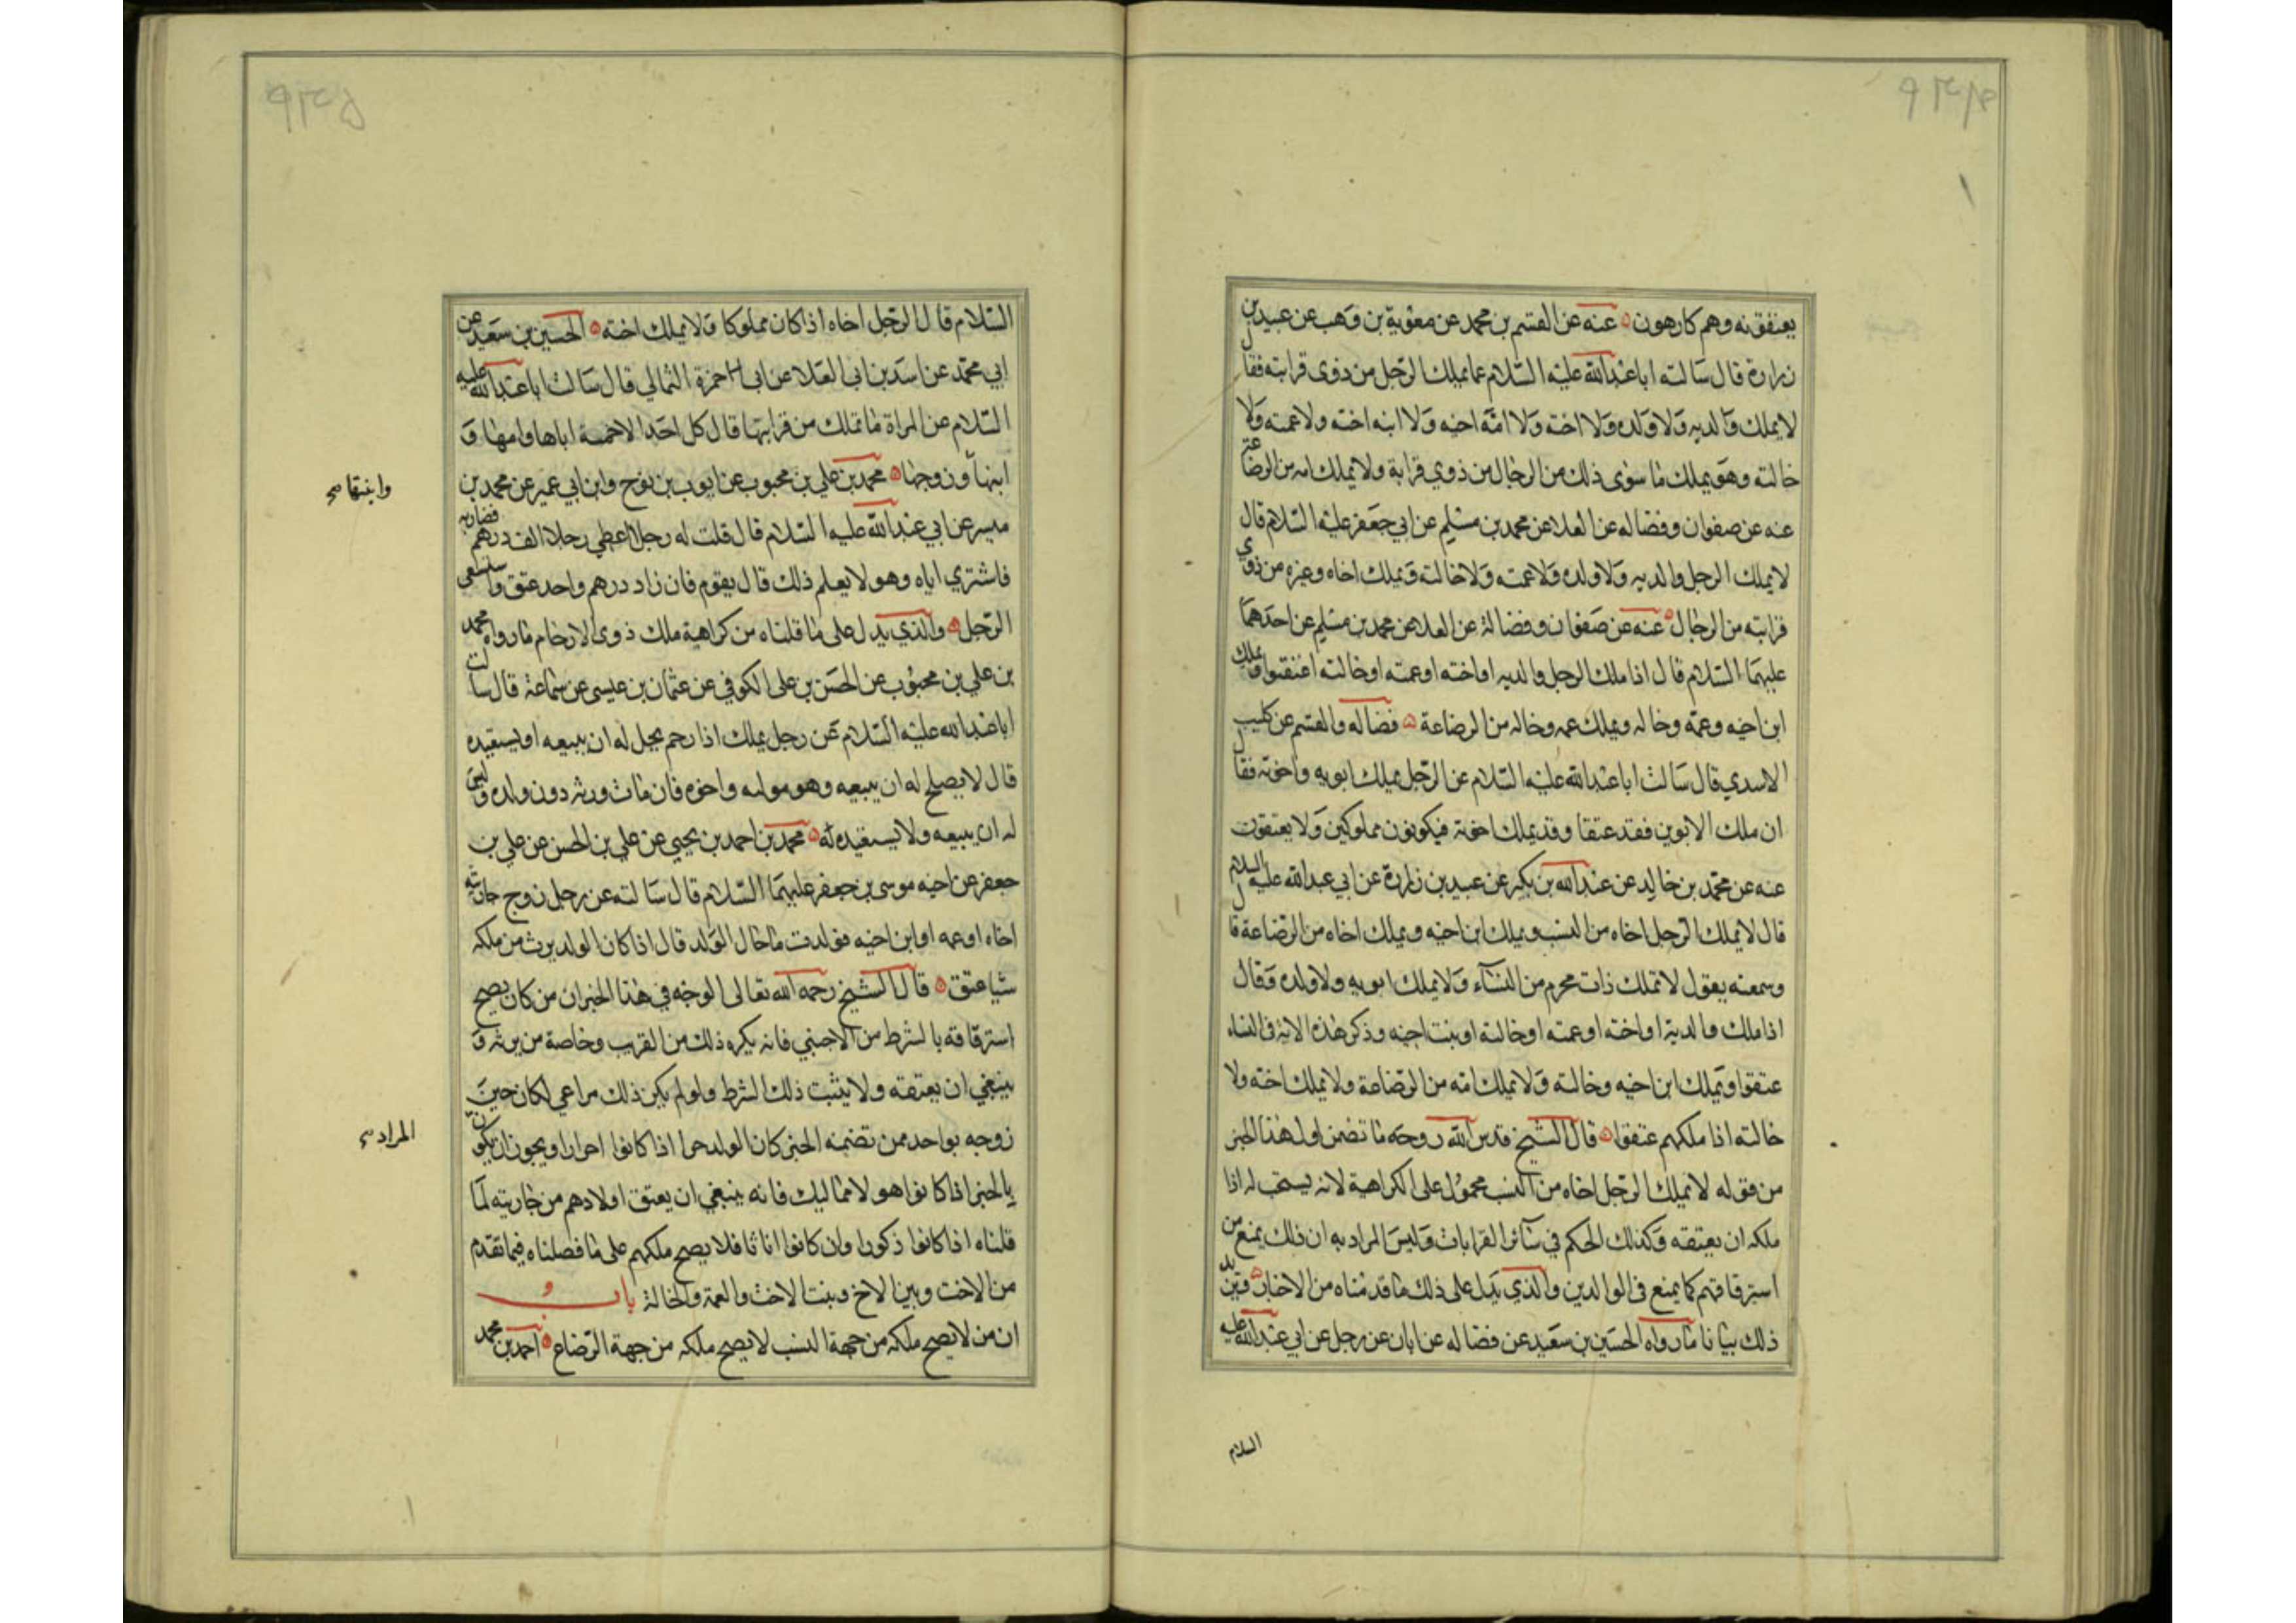 يعتقونه وهم كارهون عنه عن القسم بن محمد عن معوية بن وهب عن عبيد بن
زرارة قال سالته ابا عبد الله عليه السلام عما يملك الرجل من ذوى قرابته فقال
لا يملك والديه ولا ولده ولا اخته ولا ابنة اخيه ولا ابنه اخته ولا عمته ولا
خالته وهو يملك ما سوى ذلك من الرجال من ذوي قرابة ولا يملك امه من الرضاعة
عنه عن صفوان وفضاله عن العلا عن محمد بن مسلم عن ابي جعفر عليه السلام قال
لا يملك الرجل والديه ولا ولده ولا عمته ولا خالته ويملك اخاه وغيره من ذوي
قرابته من الرجال عنه عن صفوان وفضالة عن العلا عن محمد بن مسلم عن احدهما
عليهما السلام قال اذا ملك الرجل والديه او اخته او عمته او خالته اعتقوا ويملك
ابن اخيه وعمه وخاله ويملك عمه وخاله من الرضاعة فضاله والقسم عن كليب
الاسدي قال سالت ابا عبد الله عليه السلام عن الرجل يملك ابويه واخوته فقال
ان ملك الابوين فقد عتقا وقد يملك اخوته فيكونون مملوكين ولا يعتقون
عنه عن محمد بن خالد عن عبد الله بن بكير عن عبيد بن زرارة عن ابي عبد الله عليه السلام
قال لا يملك الرجل اخاه من النسب ويملك ابن اخيه ويملك اخاه من الرضاعة قال
وسمعته يقول لا تملك ذات محرم من النسآء ولا يملك ابويه ولا ولده وقال
اذا ملك والديه او اخته او عمته او خالته او بنت اخيه وذكر هذه الاية فى النساء
عتقوا ويملك ابن اخيه وخالته ولا يملك امه من الرضاعة ولا يملك اخته ولا
خالته اذا ملكهم عتقوا قال الشيخ قدس الله روحه ما تضمن اول هذا الخبر
من قوله لا يملك الرجل اخاه من النسب محمول على الكراهية لانه يستحب له اذا
ملكه ان يعتقه وكذلك الحكم في سآئر القرابات وليس المراد به ان ذلك يمنع من
استرقاقهم كما يمنع فى الوالدين والذي يدل على ذلك ما قدمناه من الاخبار ويزيد
ذلك بيانا ما رواه الحسين بن سعيد عن فضاله عن ابان عن رجل عن ابي عبد الله عليه
السلام
السلام قال الرجل اخاه اذا كان مملوكا ولا يملك اخته الحسين بن سعيد عن
ابي محمد عن اسد بن ابي العلا عن ابي حمزة الثمالي قال سالت ابا عبد الله عليه
السلام عن المراة ما تملك من قرابتها قال كل احد الا خمسة اباها وامها و
ابنها وزوجها محمد بن علي بن محبوب عن ايوب بن نوح وابن ابي عمير عن محمد بن
وابنتها صح
ميسر عن ابي عبد الله عليه السلام قال قلت له رجل اعطي رجلا الف درهم مضاربه
فاشترى اباه وهو لا يعلم ذلك قال يقوم فان زاد درهم واحد عتق واستسعى
الرجل والذي يدل على ما قلناه من كراهية ملك ذوى الارحام ما رواه محمد
بن علي بن محبوب عن الحسن بن على الكوفي عن عثمان بن عيسى عن سماعة قال سالت
ابا عبد الله عليه السلام عن رجل يملك اذا رحم يحل له ان يبيعه او يستعبده
قال لا يصلح له ان يبيعه وهو مولاه واخوه فان مات ورثه دون ولده وليس
له ان يبيعه ولا يستعبده له محمد بن احمد بن يحيى عن علي بن الحسن عن علي بن
جعفر عن اخيه موسى بن جعفر عليهما السلام قال سالته عن رجل زوج جاريته
اخاه او عمه او ابن اخيه فولدت ما حال الولد قال اذا كان الولد يرث من ملكه
شيا عتق قال الشيخ رحمه الله تعالى الوجه في هذا الخبر ان من كان يصح
استرقاقه بالشرط من الاجنبي فانه يكره ذلك من القريب وخاصة من يرثه و
ينبغي ان يعتقه ولا يثبت ذلك الشرط ولو لم يكن ذلك مراعي لكان حين
زوجه بواحد ممن تضمنه الخبر كان الولد حرا اذا كانوا احرارا ويجوز ان يكون
المراد صح
بالخبر اذا كانوا هولا مماليك فانه ينبغي ان يعتق اولادهم من جاريته لما
قلناه اذا كانوا ذكورا وان كانوا اناثا فلا يصح ملكهم على ما فصلناه فيما تقدم
من الاخت وبين الاخ وبنت الاخت والعمة والخالة باب
ان من لا يصح ملكه من جهة النسب لا يصح ملكه من جهة الرضاع احمد بن محمد